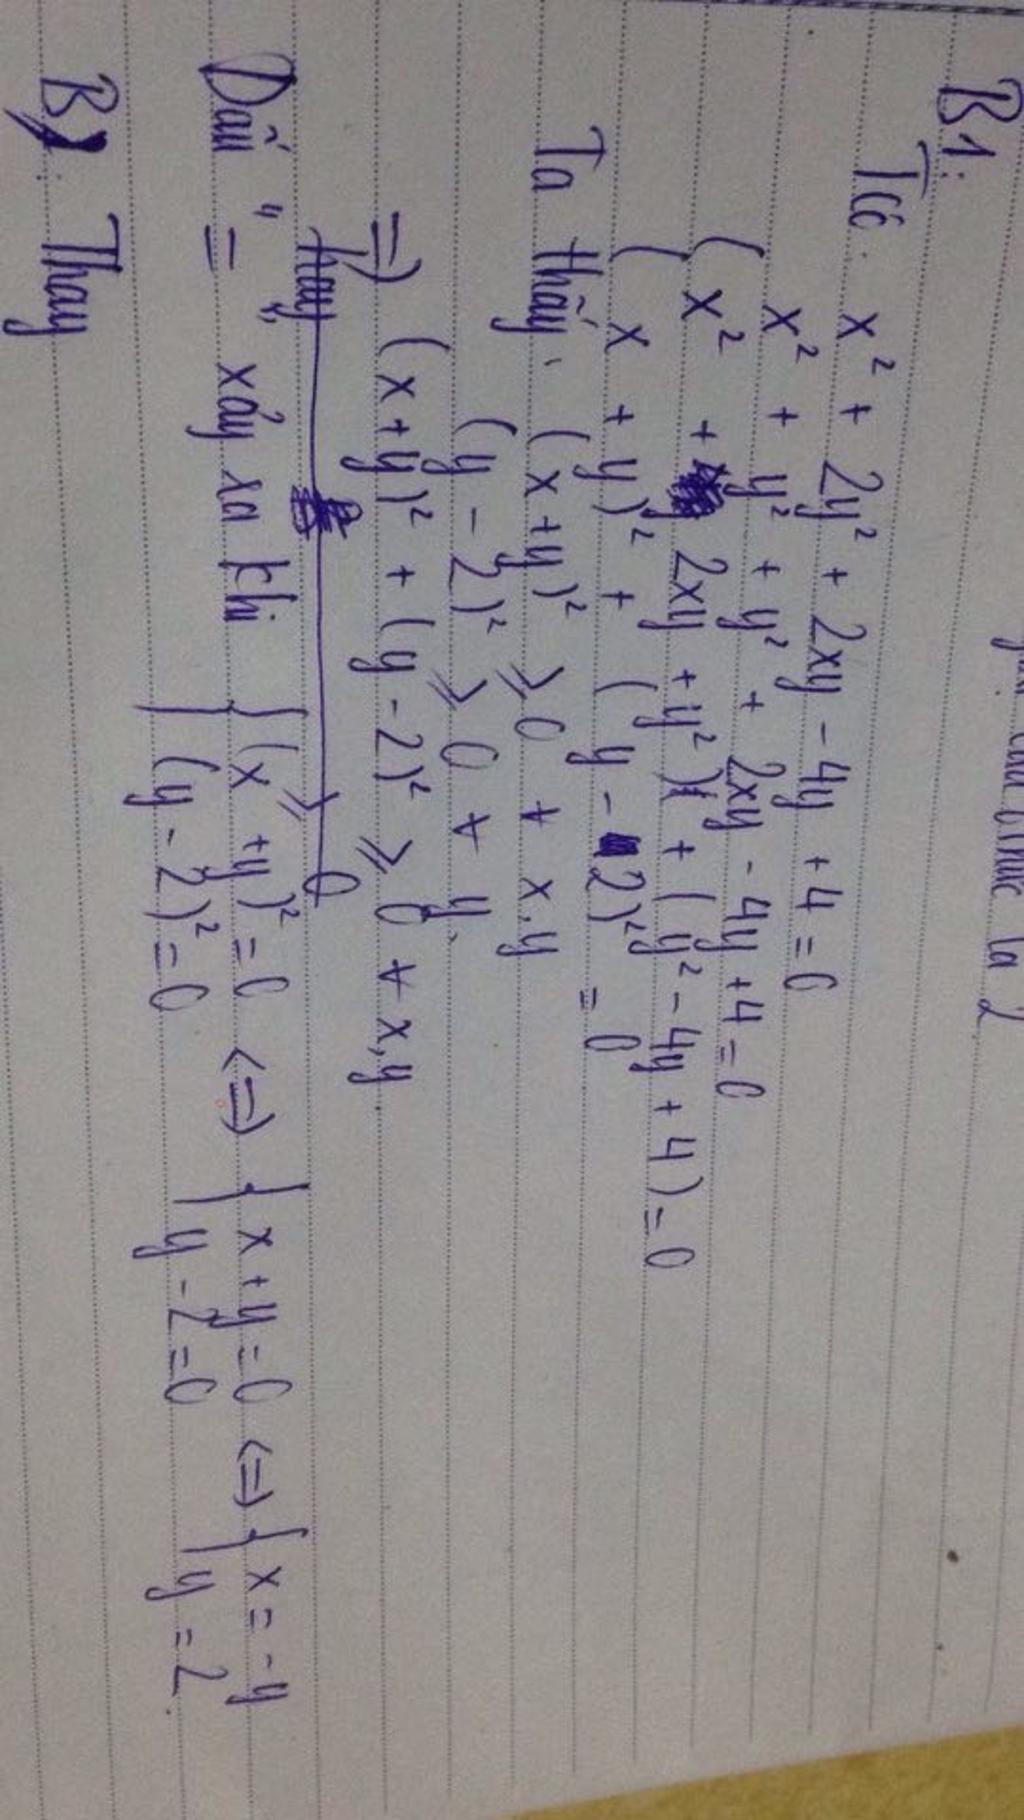 của b.thức là 2
B1:
Tcó: x² + 2y² + 2xy - 4y + 4 = 0
x² + y² + y² + 2xy - 4y + 4 = 0
(x² + 2xy + y²) + (y² - 4y + 4) = 0
(x + y)² + (y - 2)² = 0
Ta thấy: (x+y)² ≥ 0 ∀ x,y
(y - 2)² ≥ 0 ∀ y
=> (x+y)² + (y-2)² ≥ 0 ∀ x,y.
hay ≥ 0
Dấu "=" xảy ra khi { (x+y)² = 0 <=> { x+y = 0 <=> { x = -y
(y-2)² = 0 y - 2 = 0 y = 2.
B2: Thay